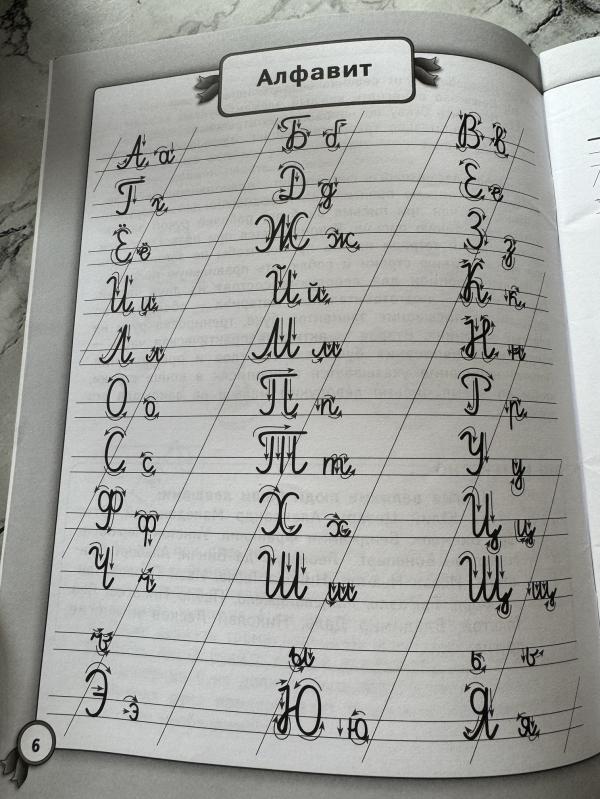 Алфавит
А а Б б В в
Г г Д д Е е
Ё ё Ж ж З з
И и Й й К к
Л л М м Н н
О о П п Р р
С с Т т У у
Ф ф Х х Ц ц
Ч ч Ш ш Щ щ
ъ ы ь
Э э Ю ю Я я
6